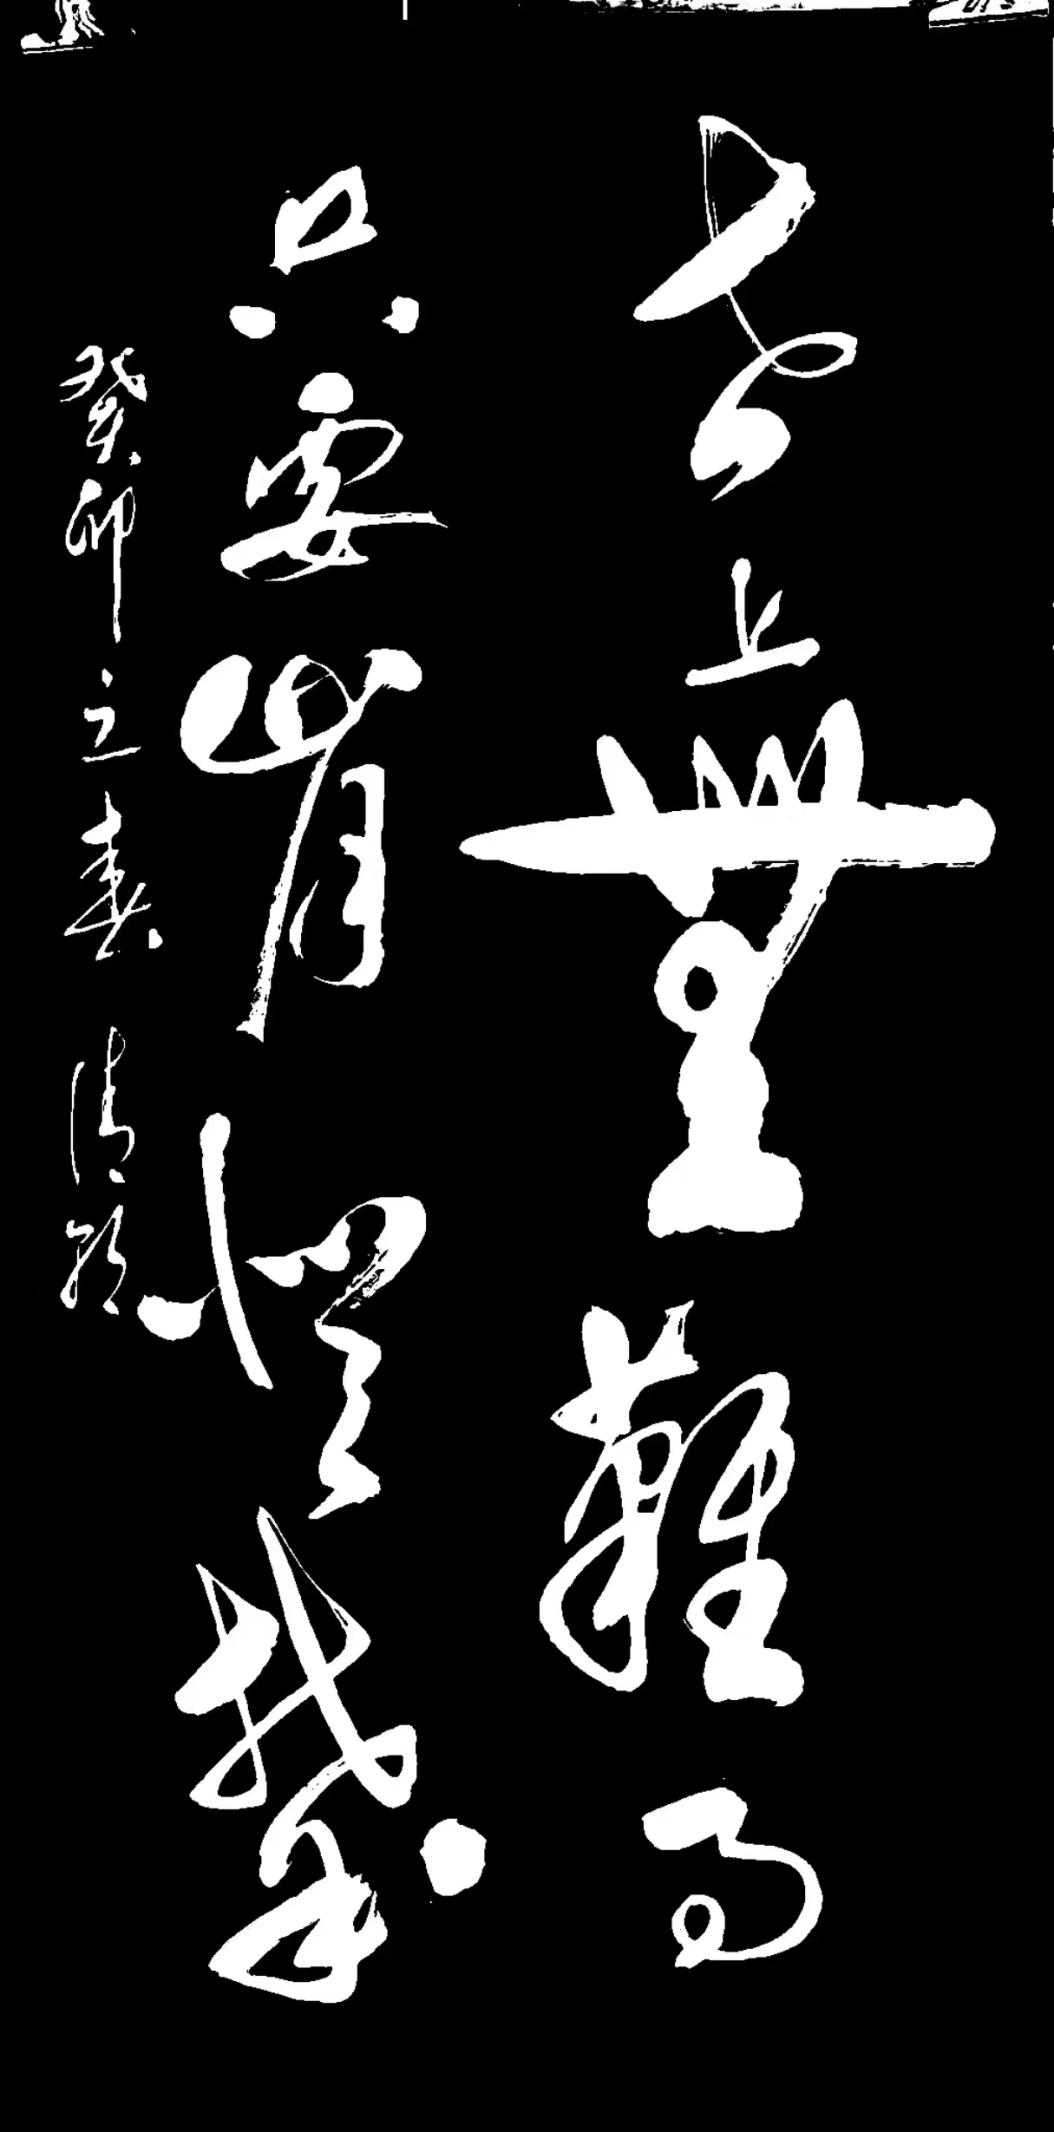 世上無難事
只要肯登攀
癸卯立春